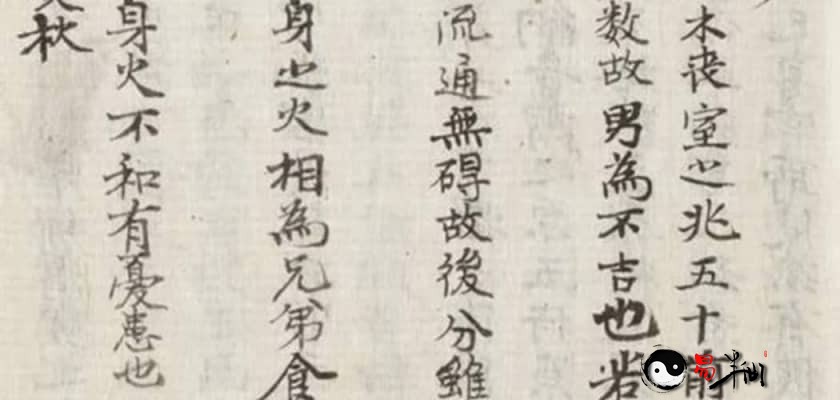 木丧室之兆五十前
数故男為不吉也若
流通無碍故後分雖
身之火相為兄弟食
身火不和有憂患也
秋
易半仙